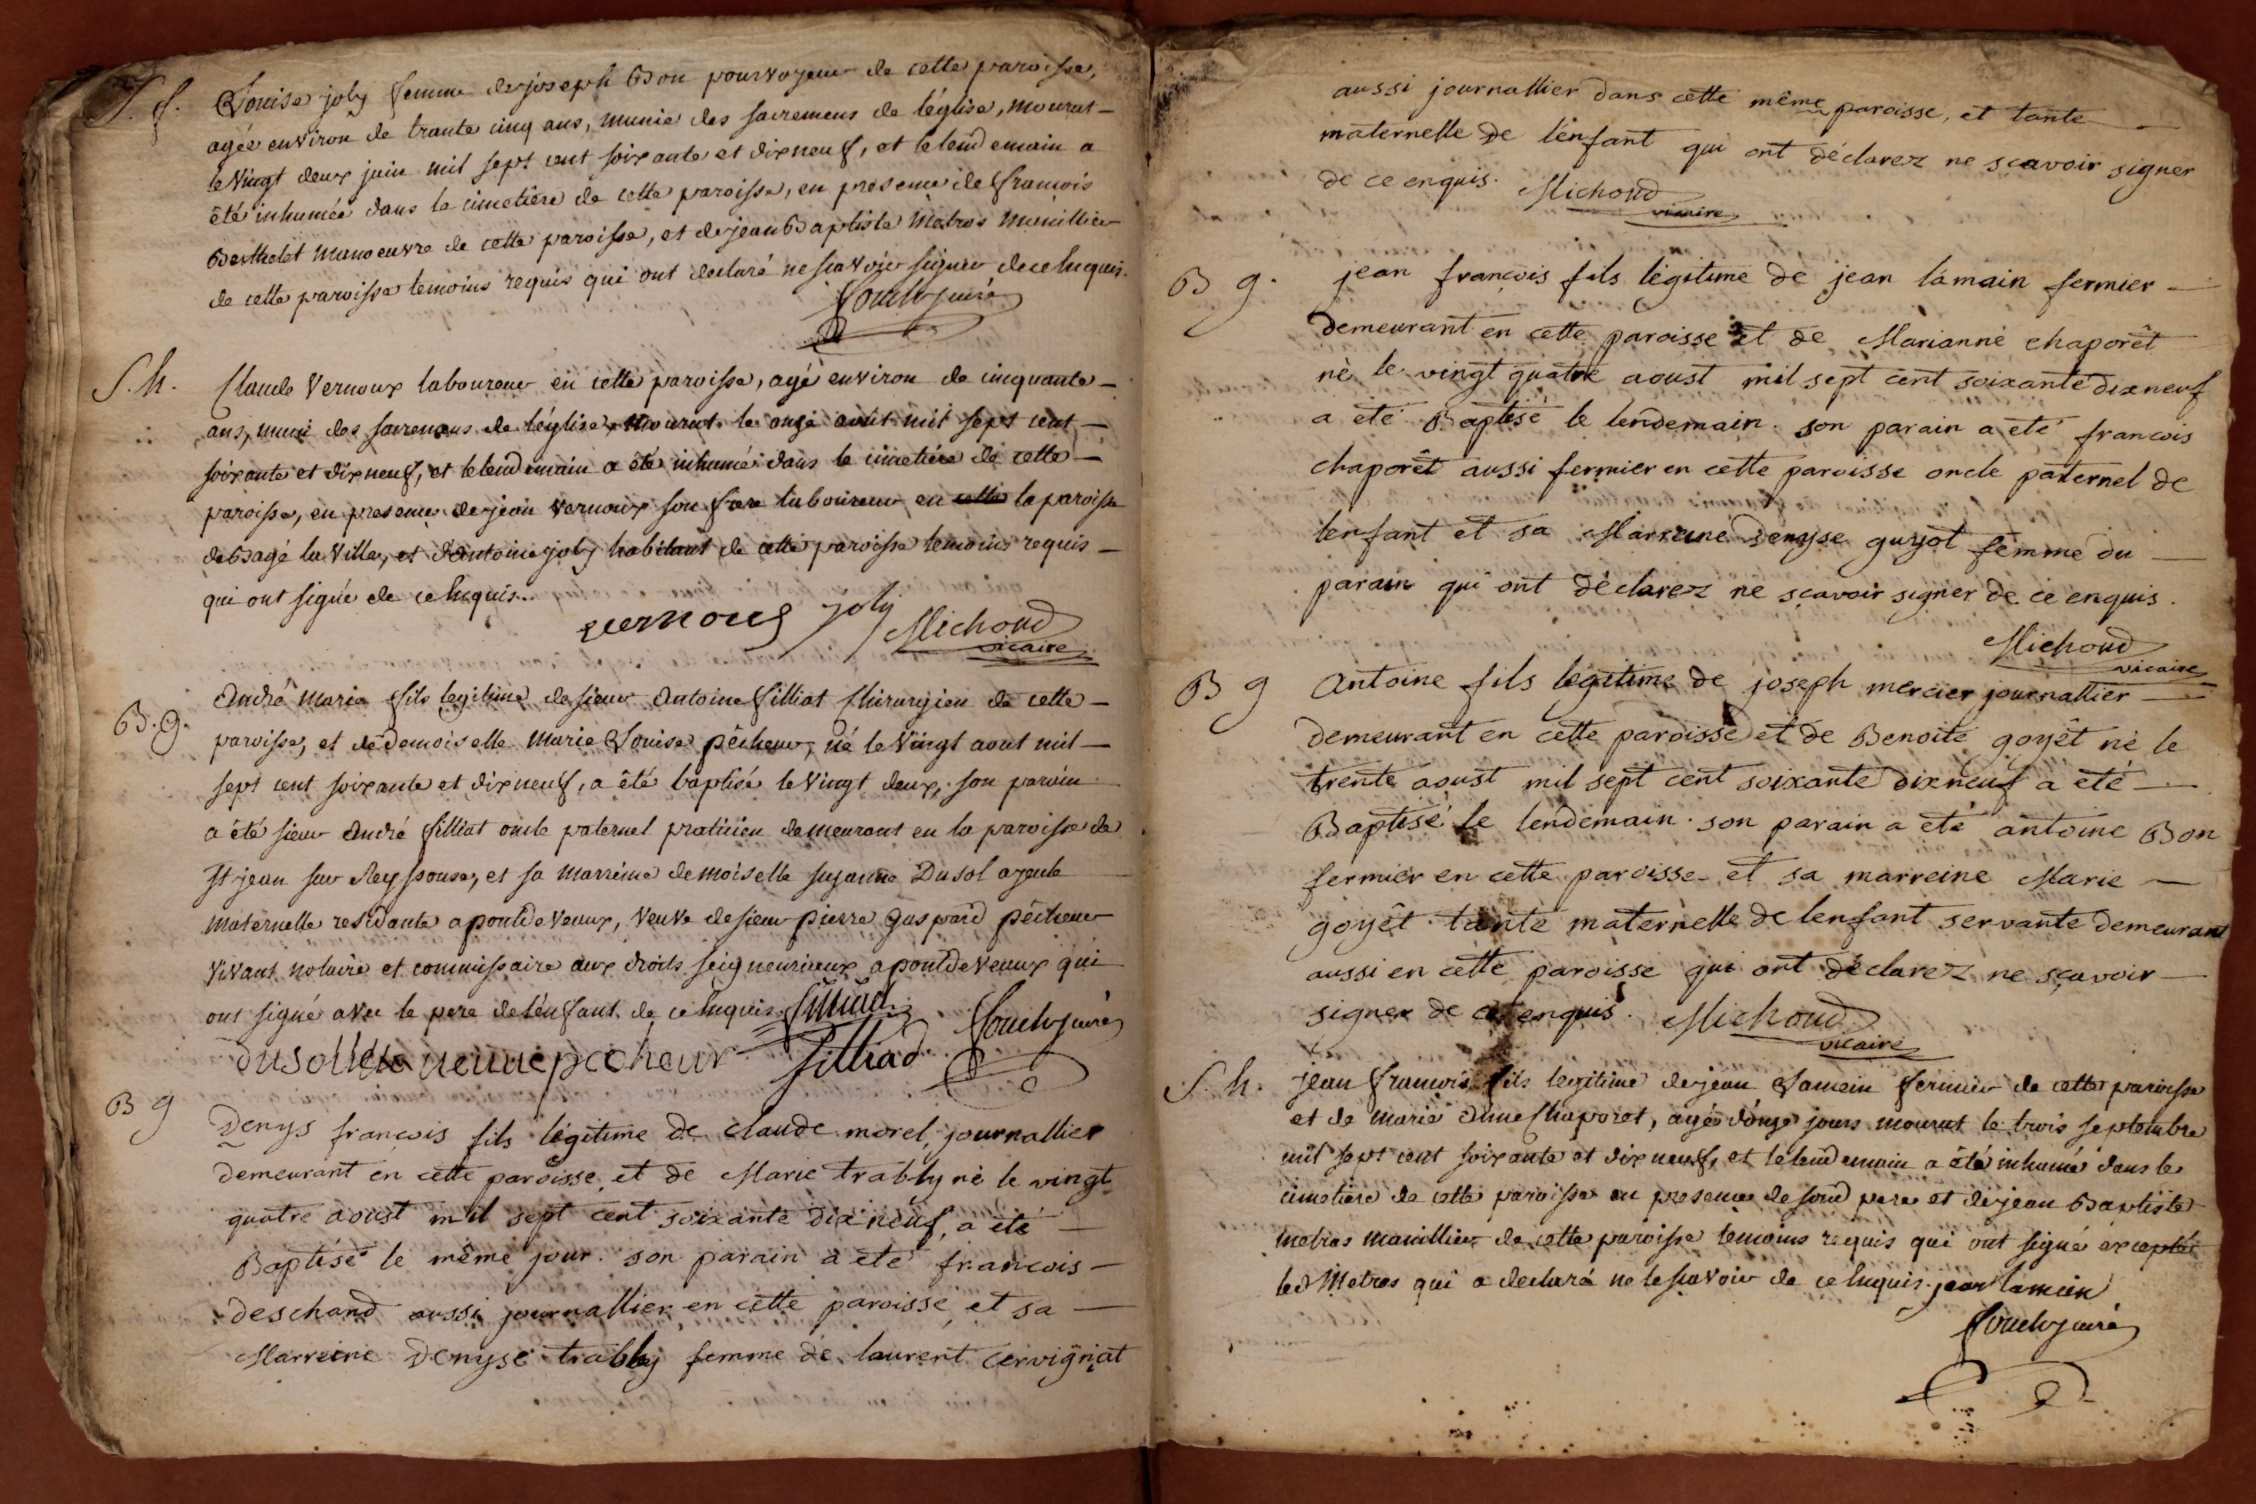 S. f. Louise joly femme de joseph Bon pourvoyeur de cette paroisse,
agée environ de trante cinq ans, munie des sacremens de léglise, mourut
le vingt deux juin mil sept cent soixante et dixneuf, et le lendemain a
été inhumée dans le cimetière de cette paroisse, en presence de francois
Berthelet manoeuvre de cette paroisse, et de jean Baptiste Metras Marillier
de cette paroisse temoins requis qui ont declaré ne scavoir signer de ce enquis.
curé
S. h. Claude Vernoux laboureur en cette paroisse, agé environ de cinquante
ans, muni des sacremens de léglise, mourut le onze août mil sept cent
soixante et dixneuf, et le lendemain a été inhumé dans le cimetière de cette
paroisse, en presence de jean vernoux son frere laboureur en cette la paroisse
de Bagé la Ville, et dantoine joly habitant de cette paroisse temoins requis
qui ont signé de ce enquis.
vernoux joly Michoud
vicaire
B. g. André Marie fils legitime de sieur Antoine filliat Chirurgien de cette
paroisse, et de demoiselle Marie Louise pêcheur, né le vingt aout mil
sept cent soixante et dixneuf, a été baptisé le vingt deux, son parain
a été sieur André filliat oncle paternel praticien demeurant en la paroisse de
St jean sur Reyssouse, et sa marreine demoiselle suzanne Dusol ayeule
maternelle residante a pontdevaux, veuve de sieur pierre gaspard pêcheur
vivant notaire et commissaire aux droits seigneuriaux a pontdevaux qui
ont signé avec le pere de lénfant de ce enquis. filliad
curé
dusol veuve pecheur filliad
B g Denys françois fils légitime de claude morel, journallier
demeurant en cette paroisse, et de Marie trably né le vingt
quatre aoust mil sept cent soixante dix neuf, a été
Baptisé le même jour. son parain a été francois
deschand aussi journallier en cette paroisse, et sa
Marreine Denyse trably femme de laurent Cervignat
aussi journallier dans cette même paroisse, et tante
maternelle de lénfant qui ont déclarez ne scavoir signer
de ce enquis. Michoud
vicaire
B g. jean françois fils légitime de jean lamain fermier
demeurant en cette paroisse et de Marianne chaporêt
né le vingt quatre aoust mil sept cent soixante dixneuf
a été Baptisé le lendemain. son parain a été francois
chaporêt aussi fermier en cette paroisse oncle paternel de
lenfant et sa Marreine denyse guyot femme du
parain qui ont déclarez ne sçavoir signer de ce enquis.
Michoud
vicaire
B g Antoine fils légitime de joseph mercier journallier
demeurant en cette paroisse et de Benoite goyêt né le
trente aoust mil sept cent soixante dixneuf a été
Baptisé le lendemain. son parain a été antoine Bon
fermier en cette paroisse et sa marreine Marie
goyêt tante maternelle de lenfant servante demeurant
aussi en cette paroisse qui ont déclarez ne sçavoir
signer de ce enquis. Michoud
vicaire
S. h. jean francois fils legitime de jean Lamain fermier de cette paroisse
et de marie Anne Chaporet, agé dónze jours mourut le trois septembre
mil sept cent soixante et dixneuf, et le lendemain a été inhumé dans le
cimetiere de cette paroisse en presence de sond pere et de jean Baptiste
metras marillier de cette paroisse temoins requis qui ont signé excepté
led Metras qui a declaré ne le scavoir de ce enquis. jean lamain
curé